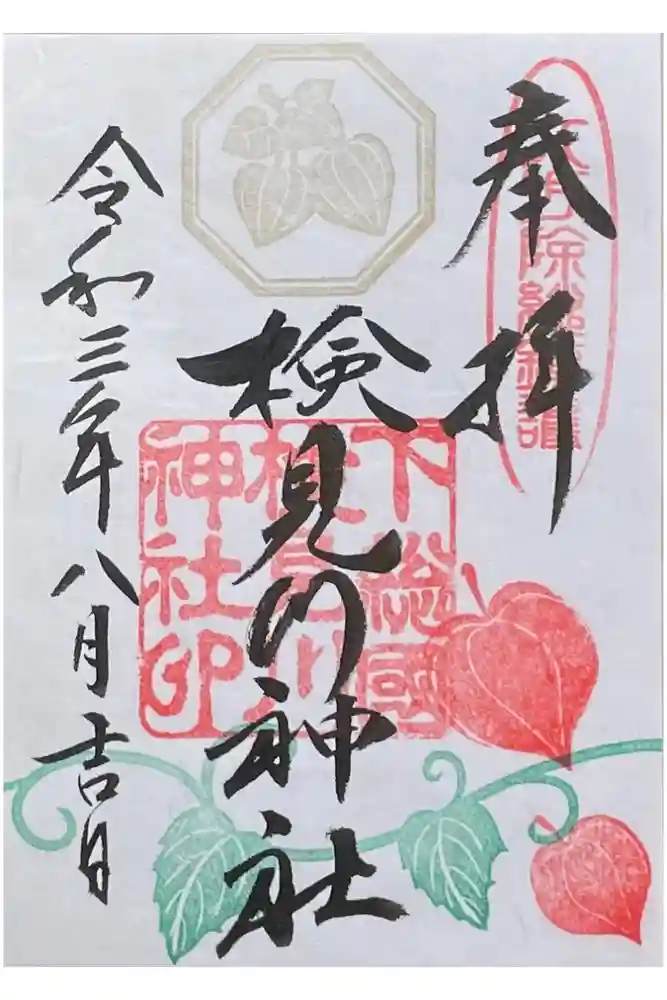 奉拝
八方除総鎮護
検見川神社
下総國
検見川
神社印
令和三年八月吉日